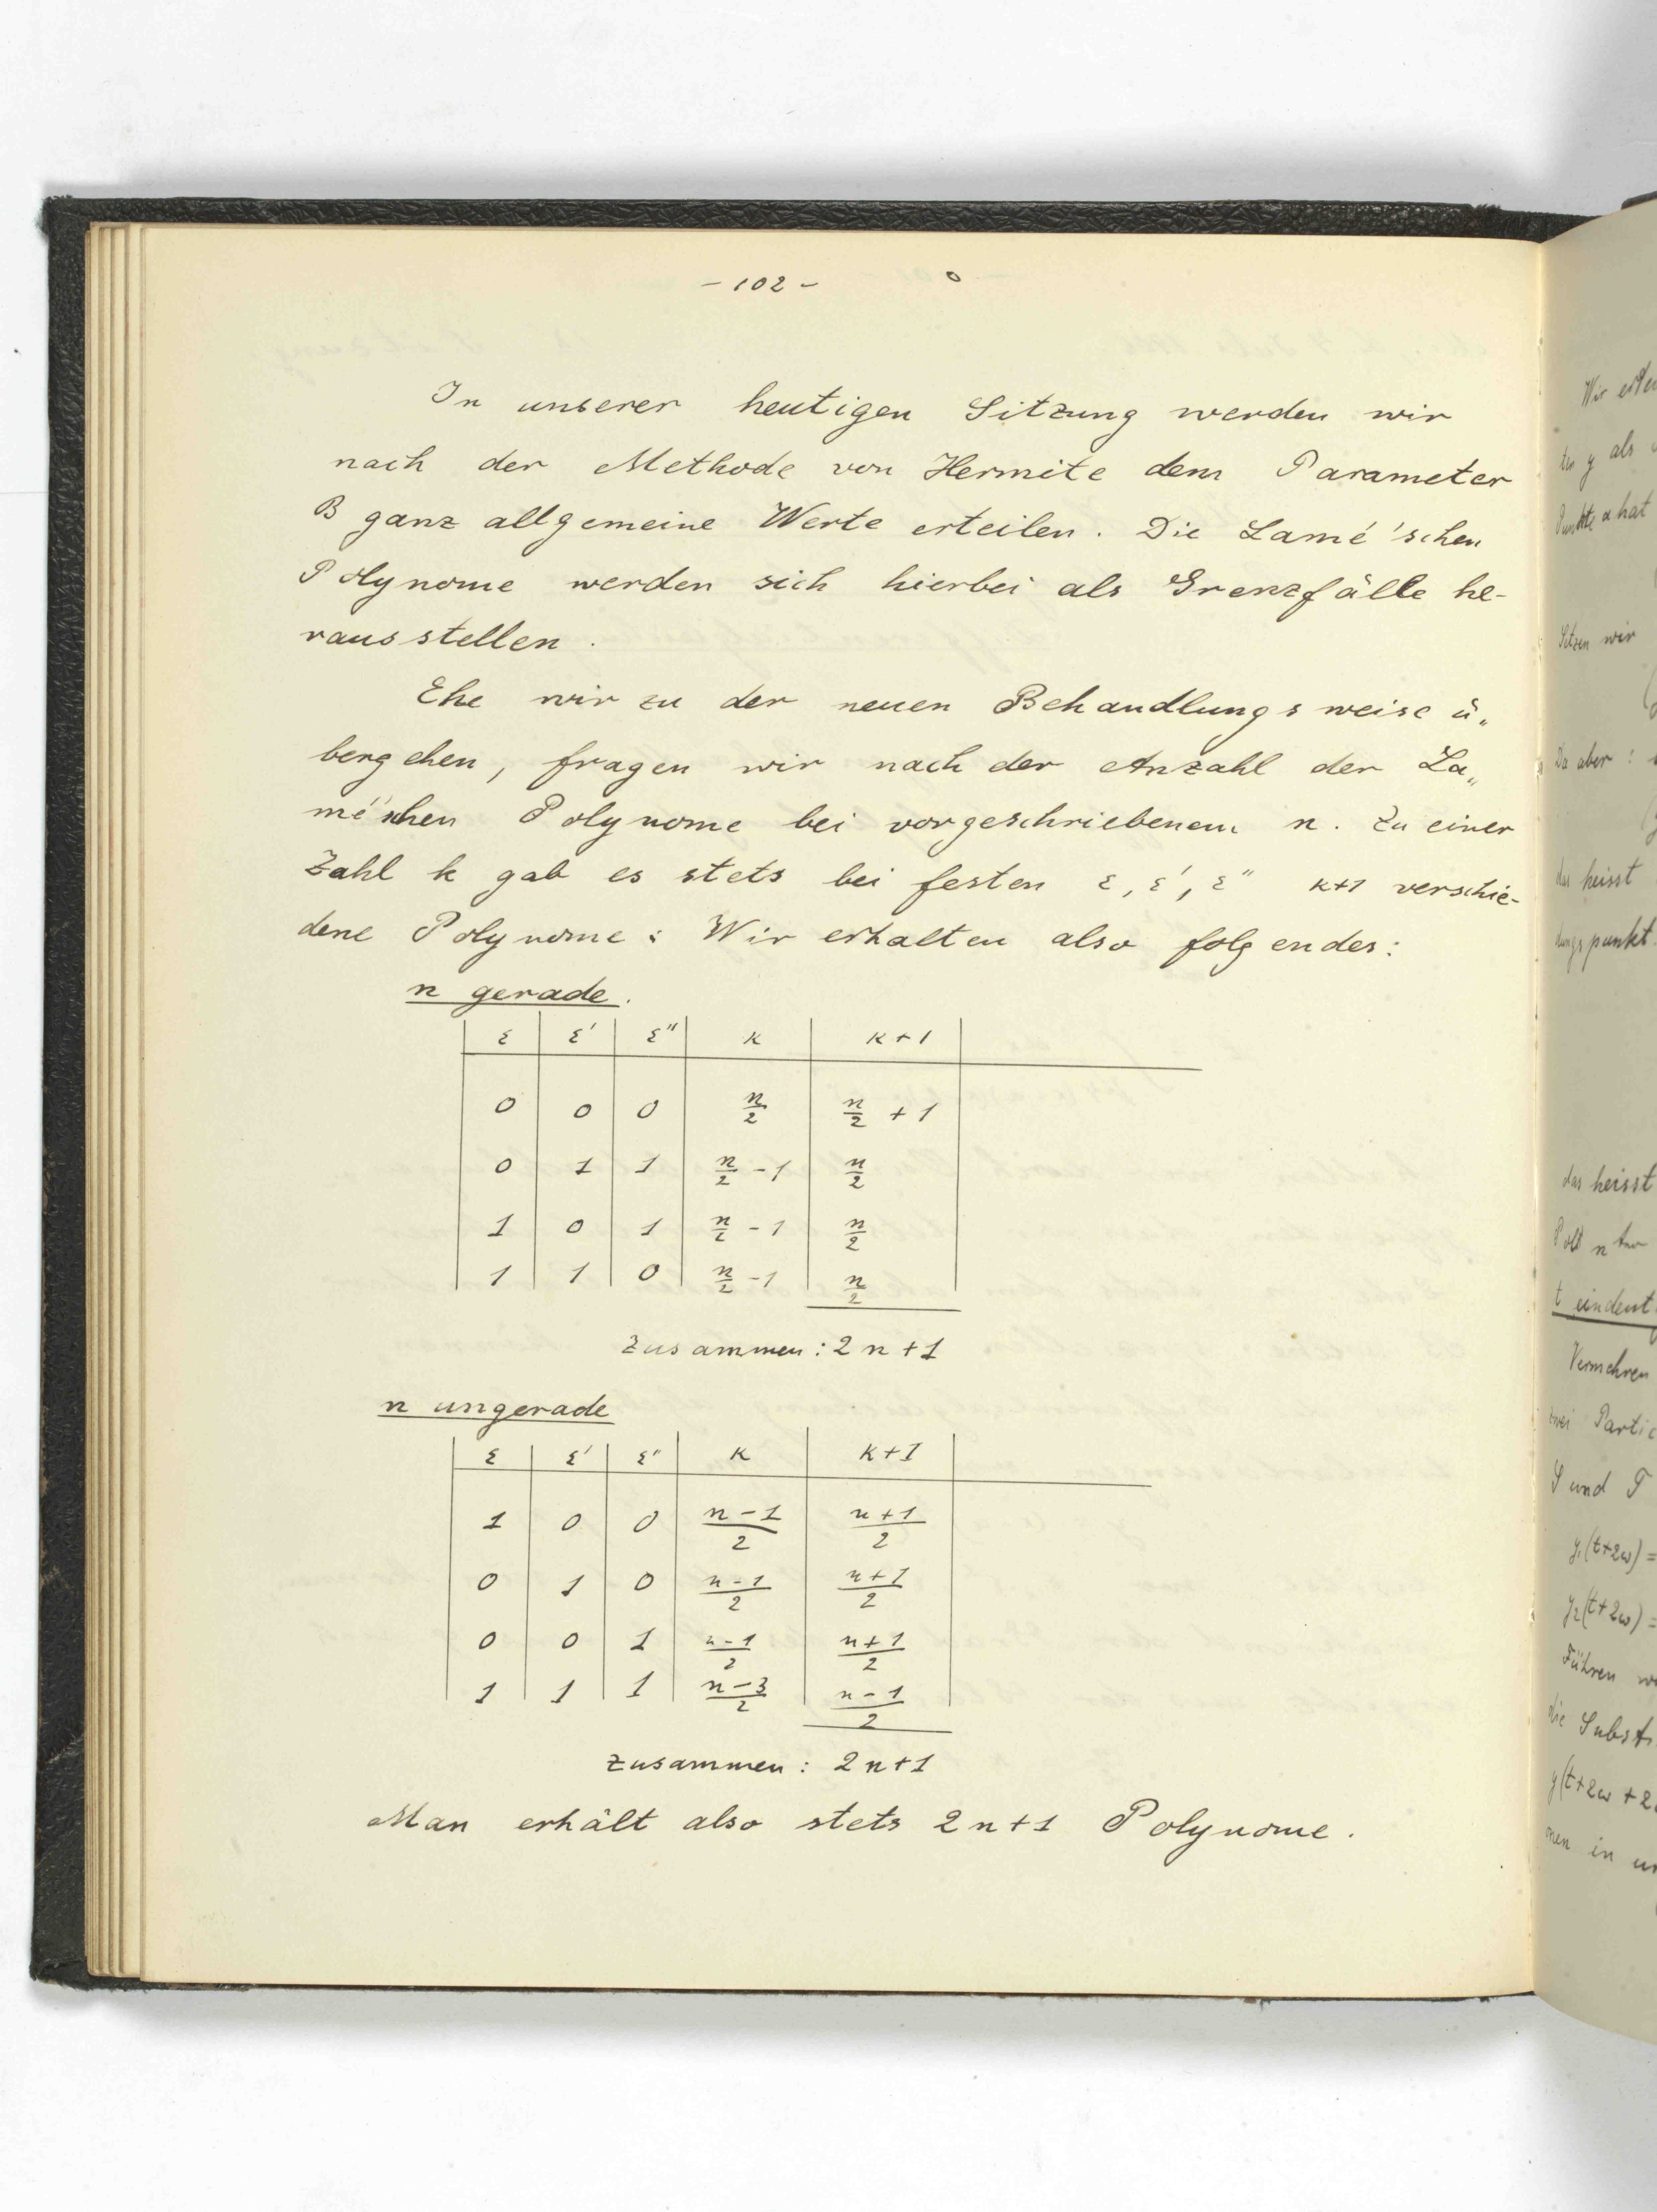 - 102 -
In unserer heutigen Sitzung werden wir
nach der Methode von Hermite dem Parameter
B ganz allgemeine Werte erteilen. Die Lamé'schen
Polynome werden sich hierbei als Grenzfälle he-
rausstellen.
Ehe wir zu der neuen Behandlungsweise ü„
bergehen, fragen wir nach der Anzahl der La„
mé'schen Polynome bei vorgeschriebenem n. Zu einer
Zahl k gab es stets bei festen ε, ε', ε'' k+1 verschie-
dene Polynome: Wir erhalten also folgendes:
n gerade.
ε ε' ε'' k k+1
0 0 0 n/2 n/2 + 1
0 1 1 n/2 - 1 n/2
1 0 1 n/2 - 1 n/2
1 1 0 n/2 - 1 n/2
Zusammen: 2n+1
n ungerade
ε ε' ε'' k k+1
1 0 0 n-1/2 n+1/2
0 1 0 n-1/2 n+1/2
0 0 1 n-1/2 n+1/2
1 1 1 n-3/2 n-1/2
Zusammen: 2n+1
Man erhält also stets 2n+1 Polynome.
Wir
ter y als
Punkte a hat
Setzen wir
Da aber :
das heisst
dungspunkt
das heisst
Pol n ter
t eindeut
Vermehren
zwei Partic
S und T
y₁(t+2ω) =
y₂(t+2ω) =
Führen
die Subst
y(t+2ω + 2
men in